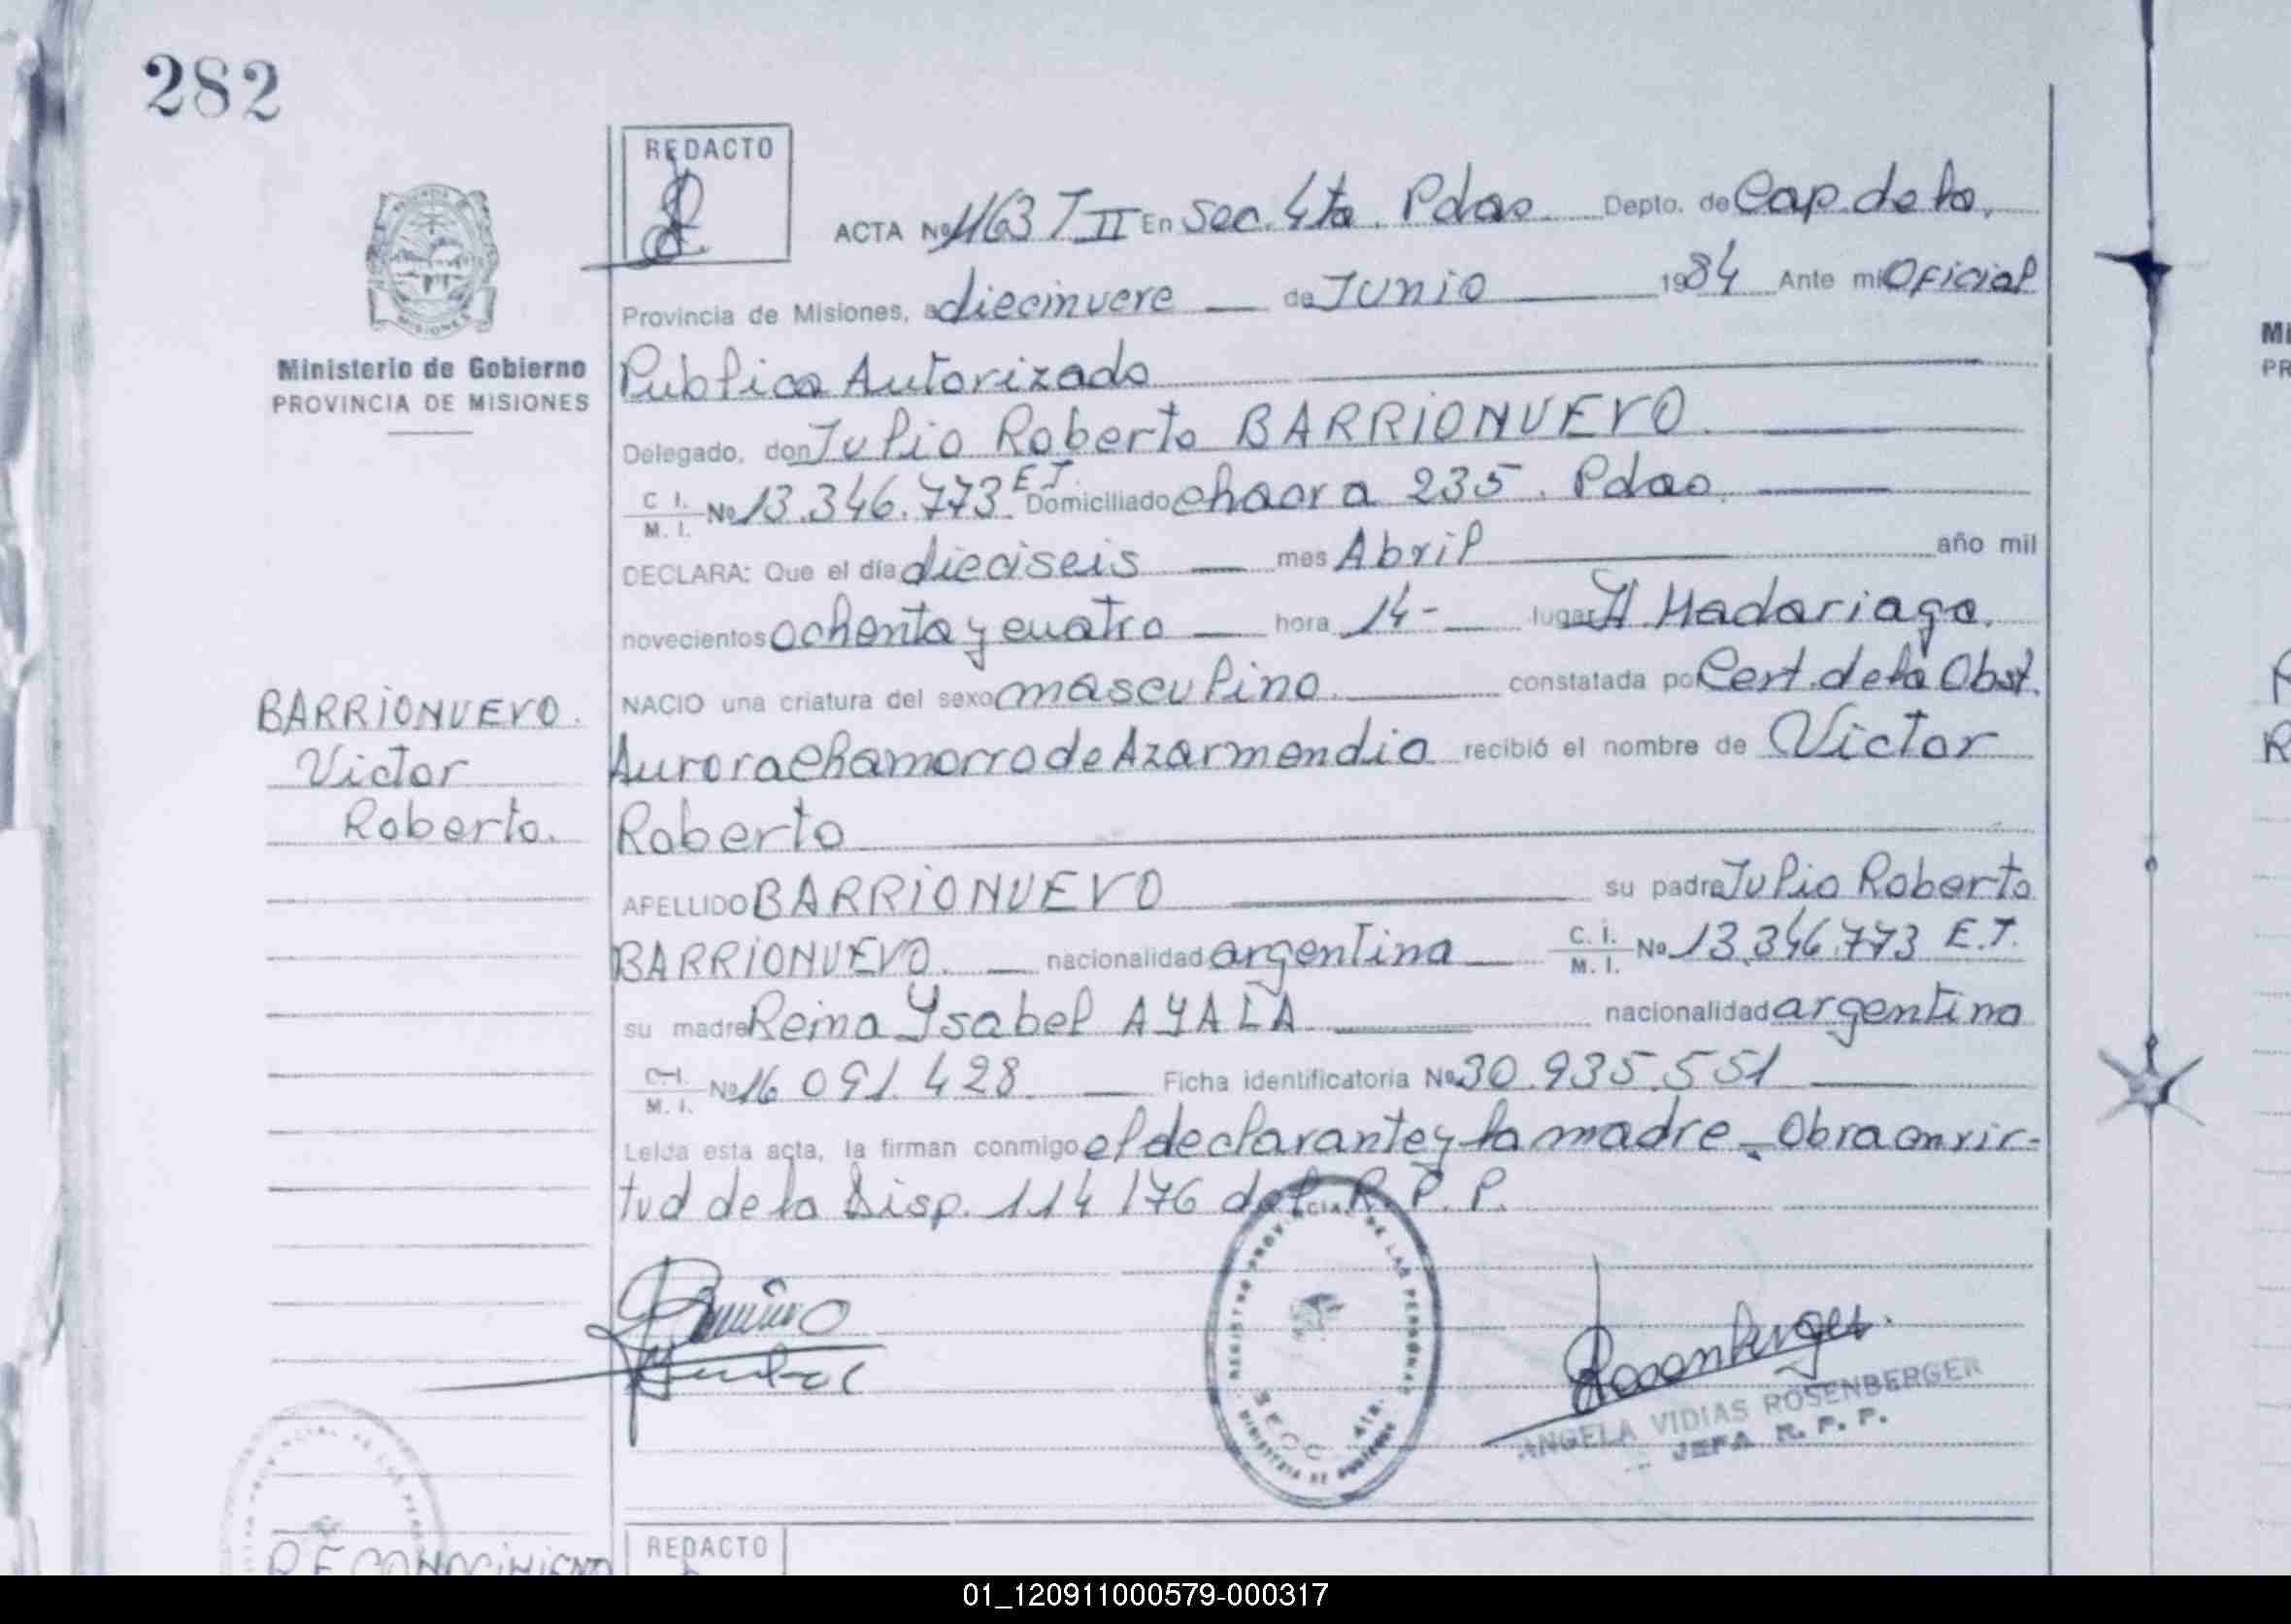 282
REDACTO
ACTA Nº 1163 T II En Sec. 4ta. Pdas. Depto. de Cap. de la.
Provincia de Misiones, a diecinueve de Junio 1984 Ante mi Oficial
Ministerio de Gobierno
PROVINCIA DE MISIONES
Publica Autorizada
Delegado, don Julio Roberto BARRIONUEVO.
C I. M. I. Nº 13.346.773 E T. Domiciliado chacra 235. Pdas.
DECLARA: Que el día dieciseis mes Abril año mil
novecientos ochenta y cuatro hora 14- lugar H. Madariaga.
NACIO una criatura del sexo masculino. constatada por Cert. de la Obst.
BARRIONUEVO.
Victor
Roberto.
Aurora Chamorro de Azarmendia recibió el nombre de Victor
Roberto
APELLIDO BARRIONUEVO su padre Julio Roberto
BARRIONUEVO. nacionalidad argentina C. I. M. I. Nº 13.346.773 E.T.
su madre Reina Ysabel AYALA nacionalidad argentina
C.I. M. I. Nº 16 091.428 Ficha identificatoria Nº 30.935.551
Leida esta acta, la firman conmigo el declarante y la madre. Obra en vir-
tud de la Disp. 114/76 del R.P.P.
REGISTRO PROVINCIAL DE LAS PERSONAS
SECC. 4ta.
MINISTERIO DE GOBIERNO
Rosenberger.
ANGELA VIDIAS ROSENBERGER
JEFA R. P. P.
RECONOCIMIENTO
REDACTO
01_120911000579-000317